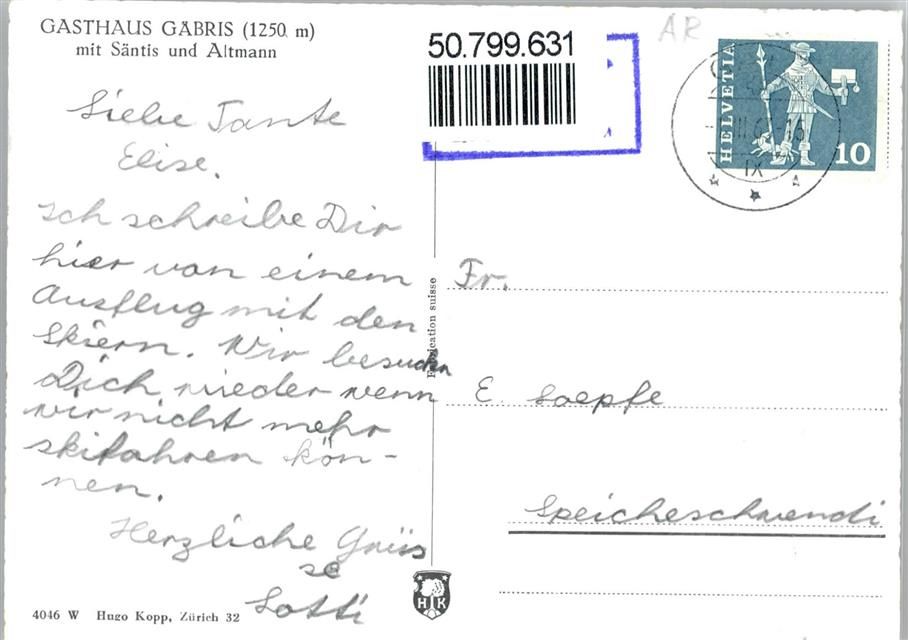 GASTHAUS GÄBRIS (1250 m)
mit Säntis und Altmann
50.799.631
AR
HELVETIA
10
IX
Liebe Tante
Elise.
Ich schreibe Dir
hier von einem
Ausflug mit den
Skiern. Wir besuchen
Dich wieder wenn
wir nicht mehr
skifahren kön-
nen.
Herzliche Grüs
se
Lotti
Fabrication suisse
Fr.
E. Soepfe
Speicheschwendi
HK
4046 W Hugo Kopp, Zürich 32